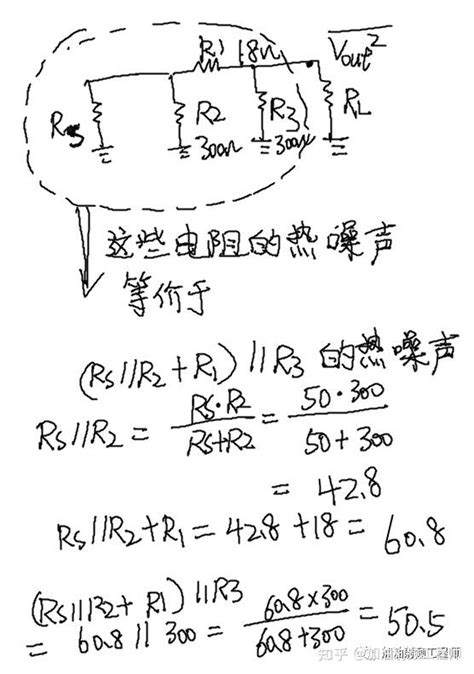 R1 18Ω
Vout²
Rs
R2
300Ω
R3
300Ω
RL
这些电阻的热噪声
等价于
(Rs//R2+R1)//R3 的热噪声
Rs//R2 = Rs·R2 / Rs+R2 = 50·300 / 50+300
= 42.8
Rs//R2+R1 = 42.8+18 = 60.8
(Rs//R2+ R1)//R3
= 60.8//300 = 60.8×300 / 60.8+300 = 50.5